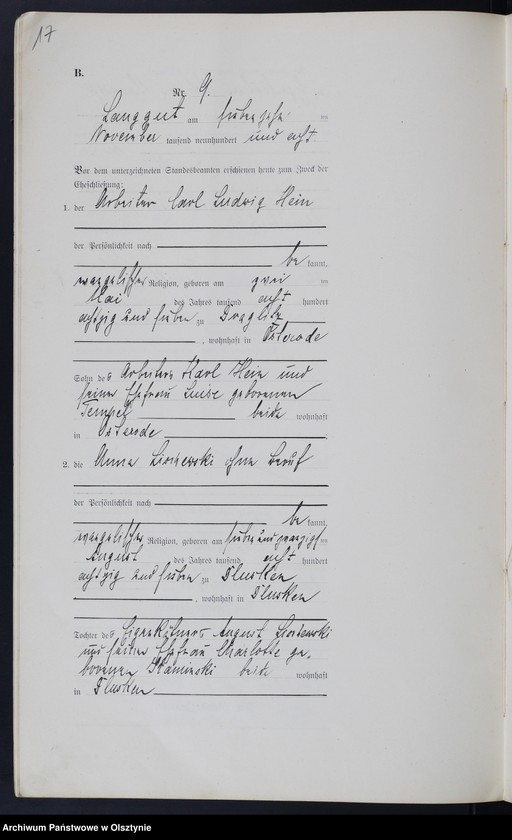 17
B.
Nr. 9.
Langgut am siebenzehn ten
November tausend neunhundert und acht
Vor dem unterzeichneten Standesbeamten erschienen heute zum Zweck der
Eheschließung:
1. der Arbeiter Carl Ludwig Hein
der Persönlichkeit nach
be kannt,
evangelischer Religion, geboren am zwei ten
Mai des Jahres tausend acht hundert
achtzig und sieben zu
, wohnhaft in Osterode
Sohn des Arbeiters Karl Hein und
seiner Ehefrau Luise geborenen
Tempel beide wohnhaft
in Osterode
2. die Anna ohne Beruf
der Persönlichkeit nach
be kannt,
evangelischer Religion, geboren am sieben und zwanzigsten
August des Jahres tausend acht hundert
achtzig und sieben zu Thusken
, wohnhaft in Thusken
Tochter des Eigenkätners August
und seiner Ehefrau Charlotte ge-
borenen Kaminski beide wohnhaft
in Thusken
Archiwum Państwowe w Olsztynie